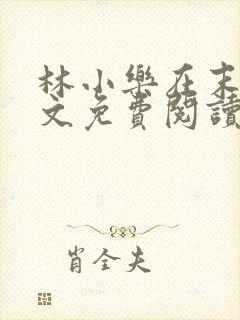 林小樂在末
文免費閱讀
肖全夫